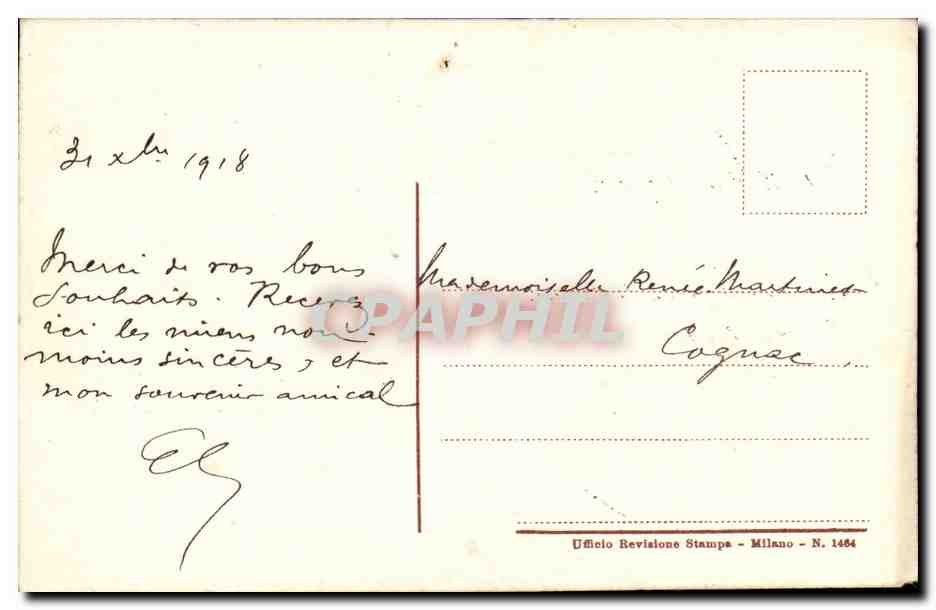 31 xbre 1918
Merci de vos bons
souhaits. Recevez
ici les miens non
moins sincères, et
mon souvenir amical
Mademoiselle Renée Martinet
Cognac.
CPAPHIL
Ufficio Revisione Stampa - Milano - N. 1464